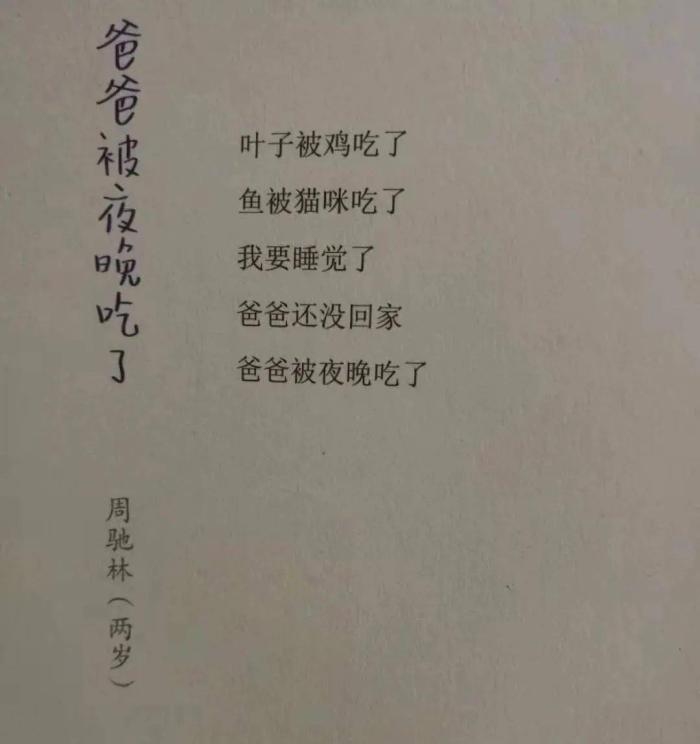 爸爸被夜晚吃了
周驰林（两岁）
叶子被鸡吃了
鱼被猫咪吃了
我要睡觉了
爸爸还没回家
爸爸被夜晚吃了